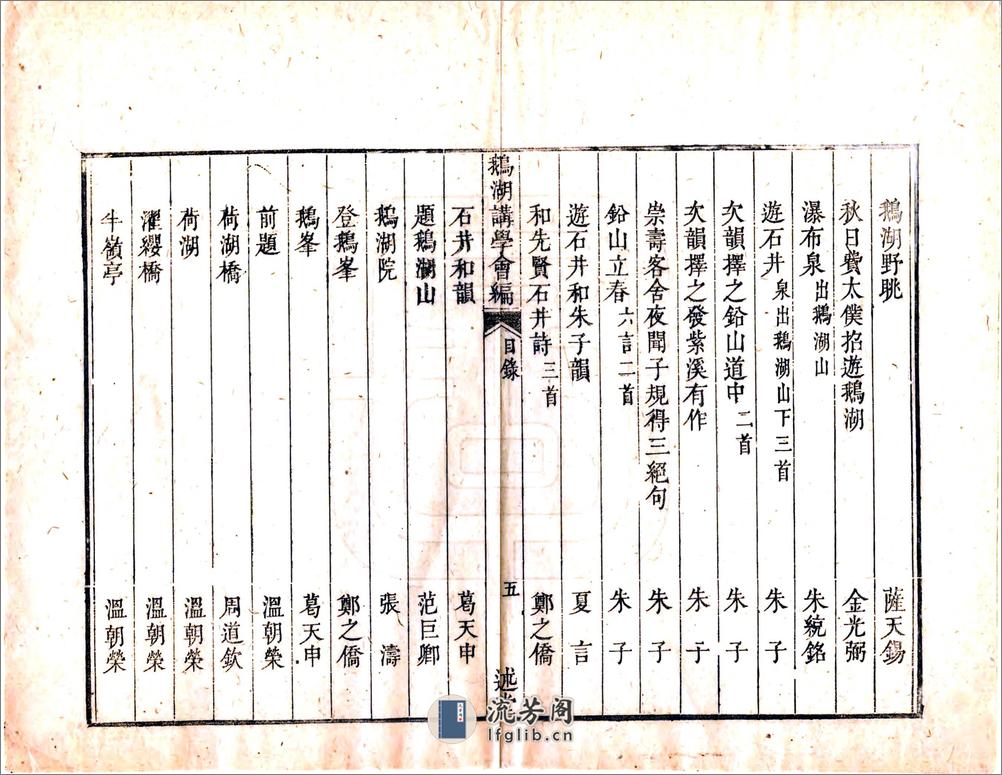 鵝湖野眺 薩天錫
秋日費太僕招遊鵝湖 金光弼
瀑布泉 出鵝湖山 朱統鉻
遊石井 泉出鵝湖山下三首 朱子
次韻擇之鉛山道中 二首 朱子
次韻擇之發紫溪有作 朱子
崇壽客舍夜聞子規得三絕句 朱子
鉛山立春 六言二首 朱子
遊石井和朱子韻 夏言
和先賢石井詩 三首 鄭之僑
鵝湖講學會編 目錄 五 述
石井和韻 葛天申
題鵝湖山 范巨卿
鵝湖院 張濤
登鵝峯 鄭之僑
鵝峯 葛天申
前題 溫朝榮
荷湖橋 周道欽
荷湖 溫朝榮
濯纓橋 溫朝榮
牛嶺亭 溫朝榮
流芳阁
lfglib.cn